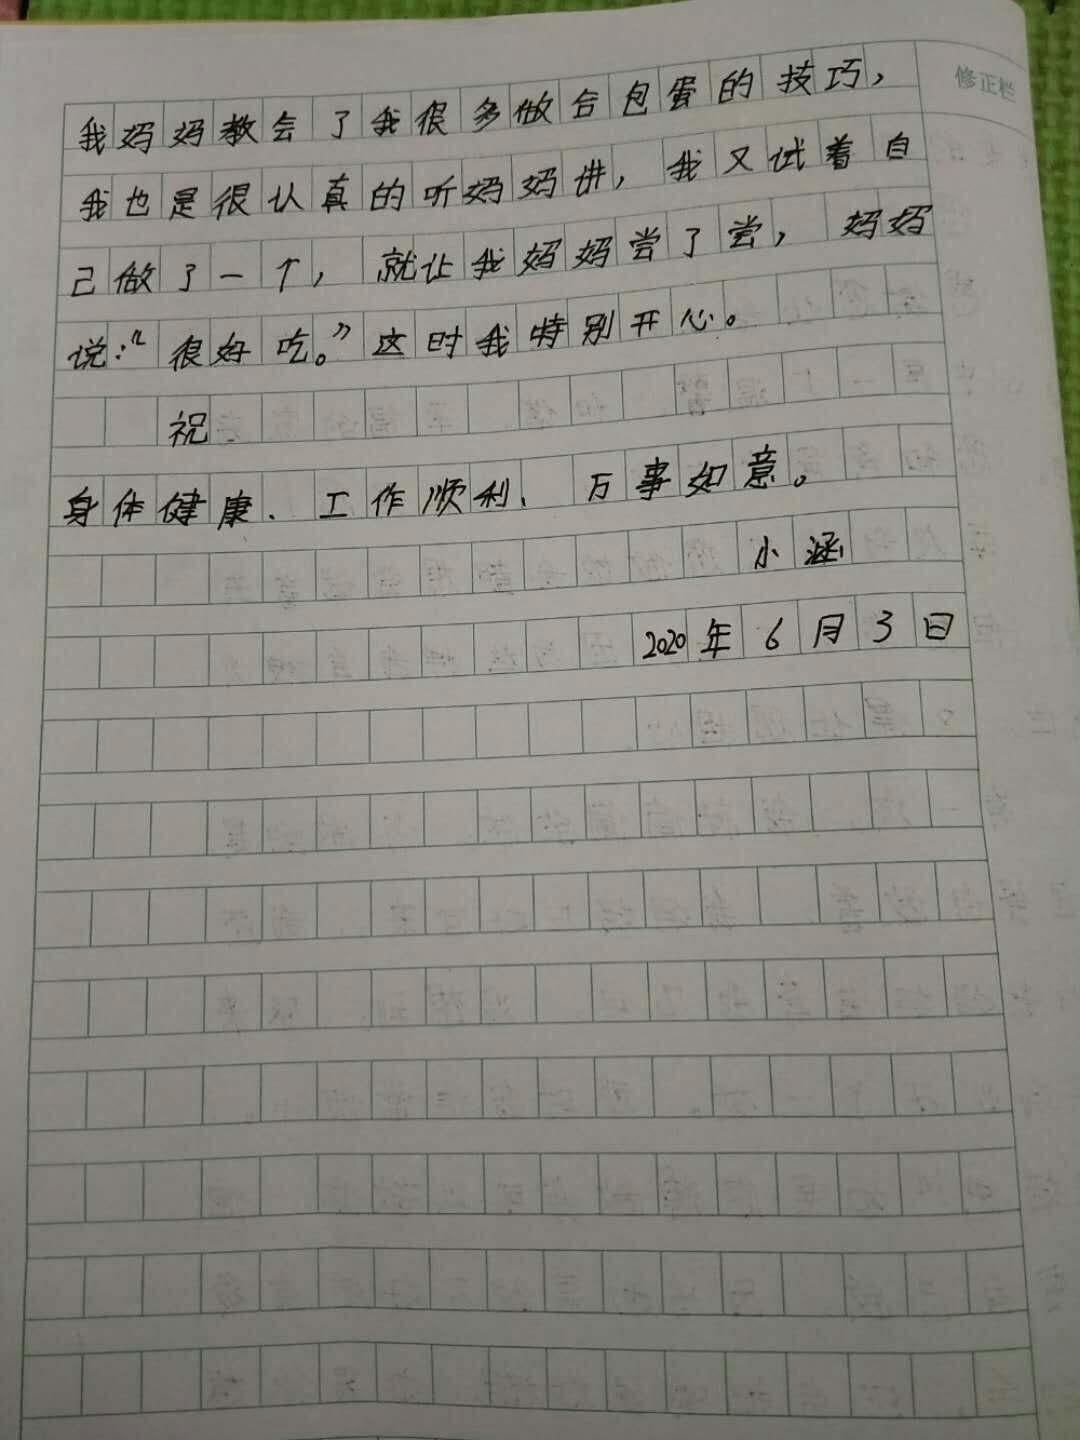 修正栏
我妈妈教会了我很多做合包蛋的技巧，
我也是很认真的听妈妈讲，我又试着自
己做了一个，就让我妈妈尝了尝，妈妈
说：“很好吃。”这时我特别开心。
祝
身体健康、工作顺利、万事如意。
小涵
2020年6月3日